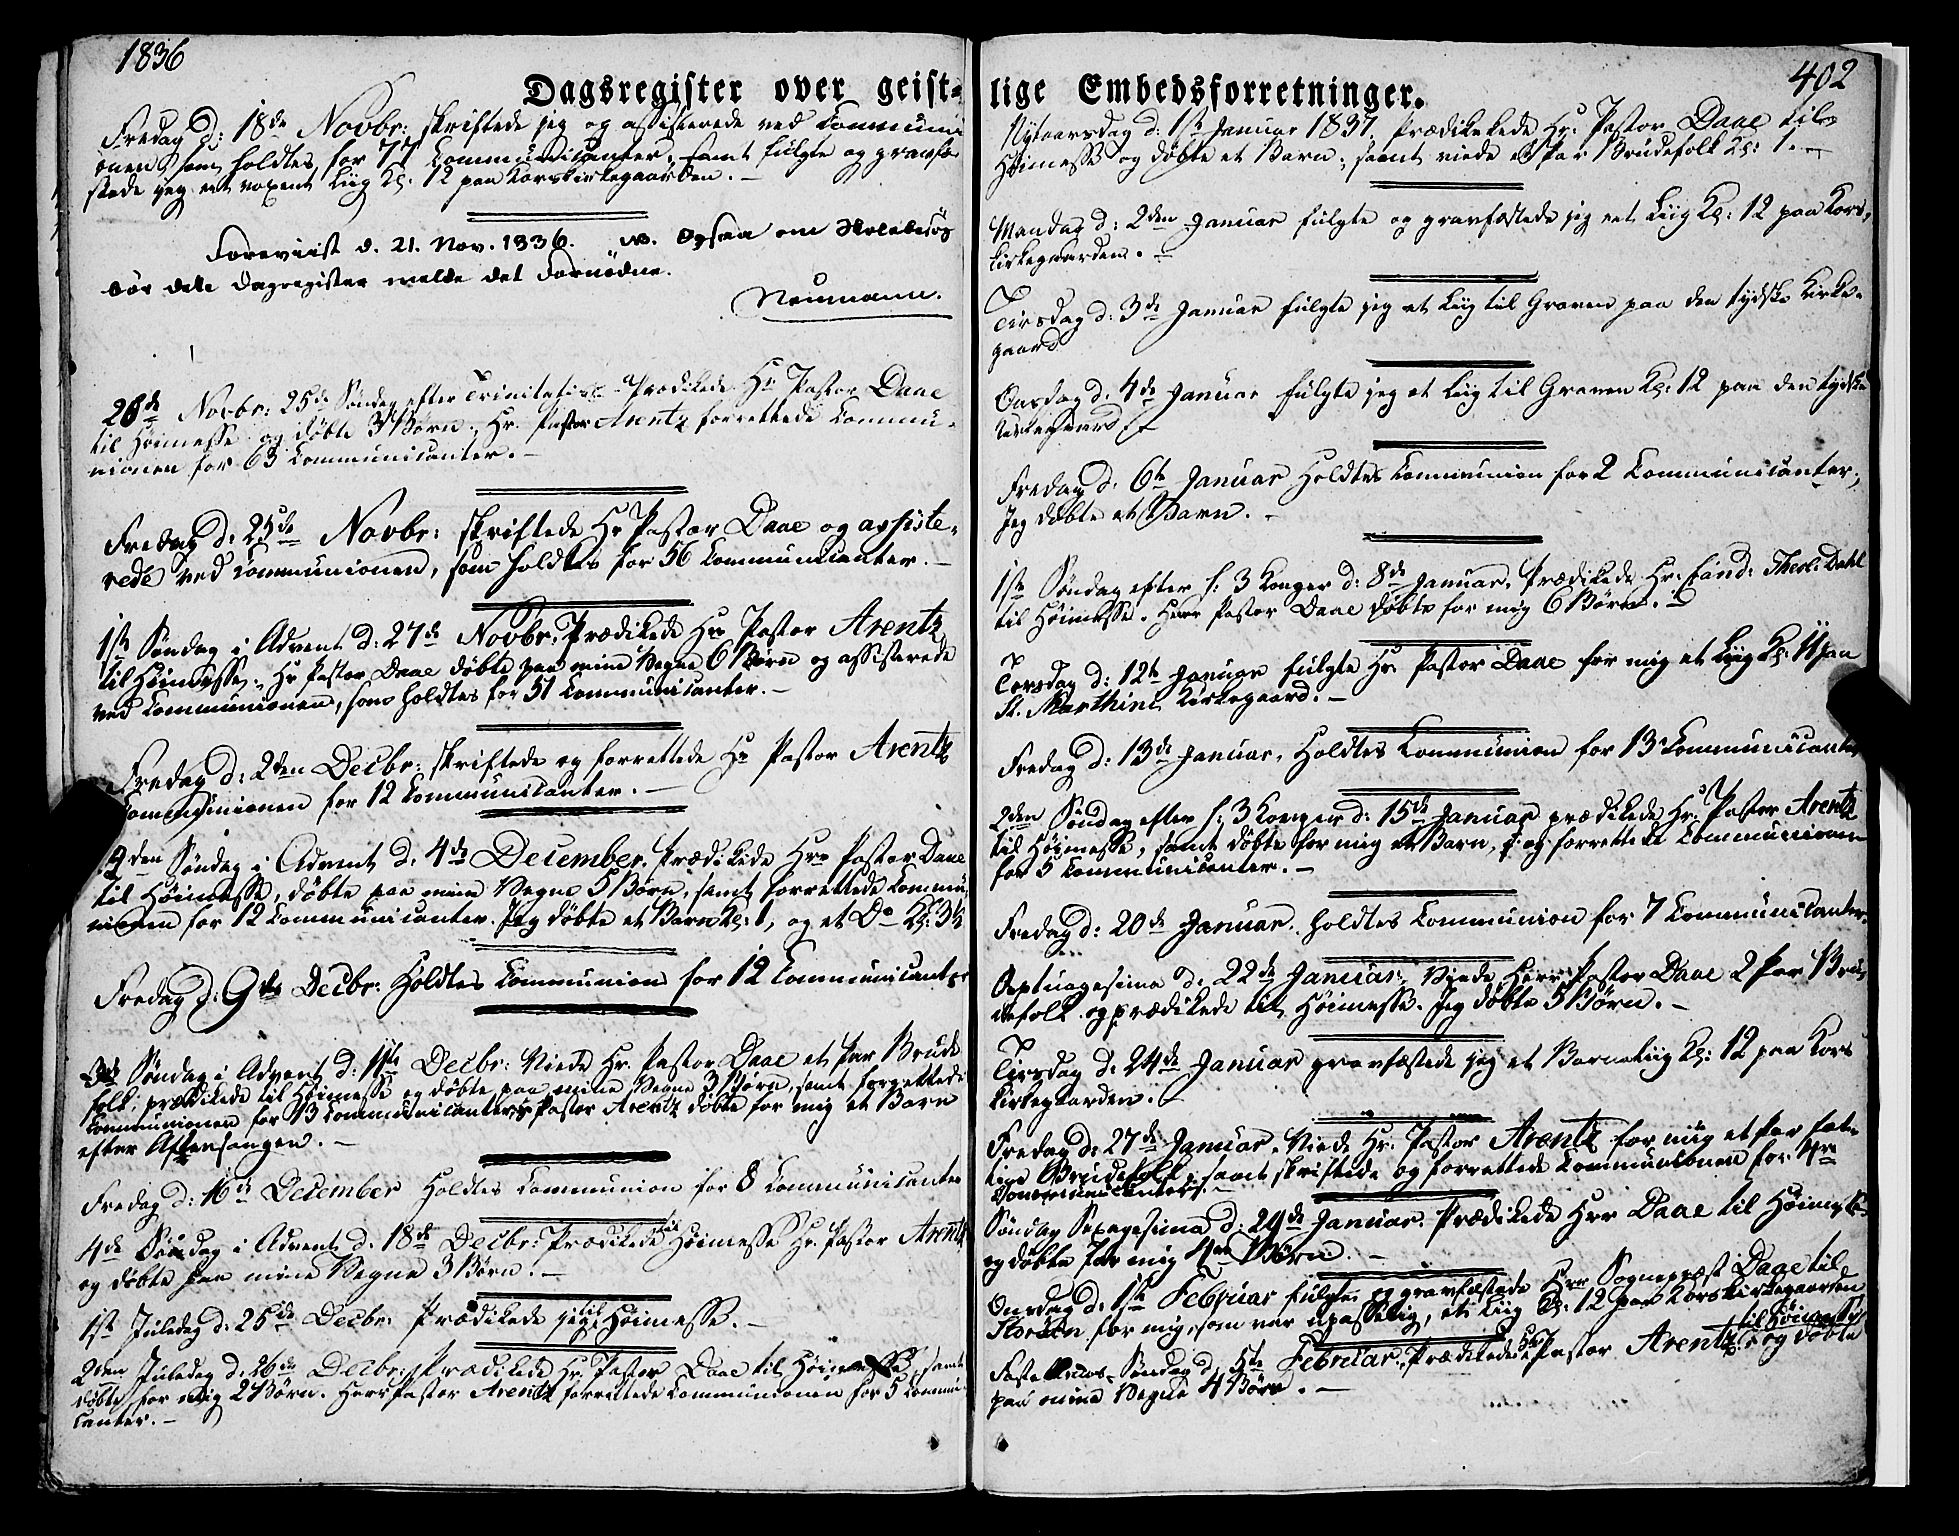 1836
Dagsregister over geist=
Fredag d: 18de Novbr: skriftede jeg og assisterede ved Communi
onen, som holdtes for 77 Communicanter, samt fulgte og gravfæ
stede jeg eet voxent Liig Kl: 12 paa Korskirkegaarden. –
Foreviist d. 21. Nov. 1836. NB. Ogsaa om
bör dette Dagregister melde det Fornødne.
Neumann.
20de Novbr: 25de Søndag efter Trinitatis Prædikede Hr Pastor Daae
til Høimesse og døbte 3 Børn. Hr. Pastor Arentz forrettede Commu-
nionen for 63 Communicanter. –
Fredag d: 25de Novbr: skriftede Hr Pastor Daae og assiste-
rede ved Communionen, som holdtes for 56 Communicanter. –
1ste Søndag i Advent d: 27de Novbr: Prædikede Hr Pastor Arentz
til Høimesse. Hr Pastor Daae døbte paa mine Vegne 6 Børn og assisterede
ved Communionen, som holdtes for 51 Communicanter. –
Fredag d: 2den Decbr: skriftede og forrettede Hr Pastor Arentz
Communionen for 12 Communicanter. –
2den Søndag i Advent d: 4de December. Prædikede Hr Pastor Daae
til Høimesse, døbte paa mine Vegne 5 Børn, samt forrettede Commu
nionen for 12 Communicanter. Jeg døbte et Barn Kl: 1, og et Do Kl: 3½
Fredag d: 9de Decbr: Holdtes Communion for 12 Communicanter
3de Søndag i Advent d: 11te Decbr: Viede Hr. Pastor Daae et Par Brude
folk, prædikede til Høimesse og døbte paa mine Vegne 3 Børn, samt forrettede
Communionen for 13 Communicanter. Pastor Arentz døbte for mig et Barn
efter Aftensangen. –
Fredag d: 16de December Holdtes Communion for 8 Communicanter
4de Søndag i Advent d: 18de Decbr: Prædikede til Høimesse Hr. Pastor Arentz
og døbte paa mine Vegne 3 Børn. –
1ste Juledag d: 25de Decbr: Prædikede jeg til Høimesse. –
2den Juledag d: 26de Decbr: Prædikede Hr. Pastor Daae til Høimesse, samt
døbte for mig 2 Børn. Herr Pastor Arentz forrettede Communionen for 5 Communi
canter. –
402
lige Embedsforretninger.
Nytaarsdag d: 1ste Januar 1837. Prædikede Hr: Pastor Daae til
Høimesse og døbte et Barn, samt viede et Par Brudefolk Kl: 1. –
Mandag d: 2den Januar fulgte og gravfæstede jeg eet Liig Kl: 12 paa Kors,
kirkegaarden. –
Tirsdag d: 3de Januar fulgte jeg et Liig til Graven paa den tydske Kirke-
gaard
Onsdag d. 4de Januar fulgte jeg et Liig til Graven Kl: 12 paa den tydske
Kirkegaard
Fredag d. 6te Januar Holdtes Communion for 2 Communicanter;
Jeg døbte et Barn. –
1ste Søndag efter h: 3 Konger d: 8de Januar. Prædikede Hr: Cand: Theol: Dahl
til Høimesse. Herr Pastor Daae døbte for mig 6 Børn.
Torsdag d: 12te Januar fulgte Hr. Pastor Daae for mig et Liig Kl: 11 paa
St. Marthini Kirkegaard. –
Fredag d: 13de Januar. Holdtes Communion for 13 Communicanter
2den Søndag efter h: 3 Konger d: 15de Januar prædikede Hr. Pastor Arentz
til Høimesse, samt døbte for mig et Barn, og forrettede Communionen
for 5 Communicanter. –
Fredag d: 20de Januar. Holdtes Communion for 7 Communicanter.
Septuagesima d: 22de Januar. Viede Herr Pastor Daae 2 Par Bru,
defolk og prædikede til Høimesse. Jeg døbte 5 Børn. –
Tirsdag d: 24de Januar gravfæstede jeg et Barneliig Kl: 12 paa Kors
kirkegaarden. –
Fredag d: 27de Januar. Viede Hr: Pastor Arentz for mig et Par fat-
tige Brudefolk, samt skriftede og forrettede Communionen for 4re
Communicanter. –
Søndag Sexagesima d: 29de Januar. Prædikede Herr Daae til Høimesse
og døbte for mig 4re Børn. –
Onsdag d: 1ste Februar fulgte og gravfæstede Herr Sognepræst Daae til
Storøen for mig, som var upasselig, et Liig Kl: 12 paa Korskirkegaarden
Fastelavns Søndag d: 5te Februar. Prædikede Hr Pastor Arentz til Høimesse og døbte
paa mine Vegne 4 Børn. –